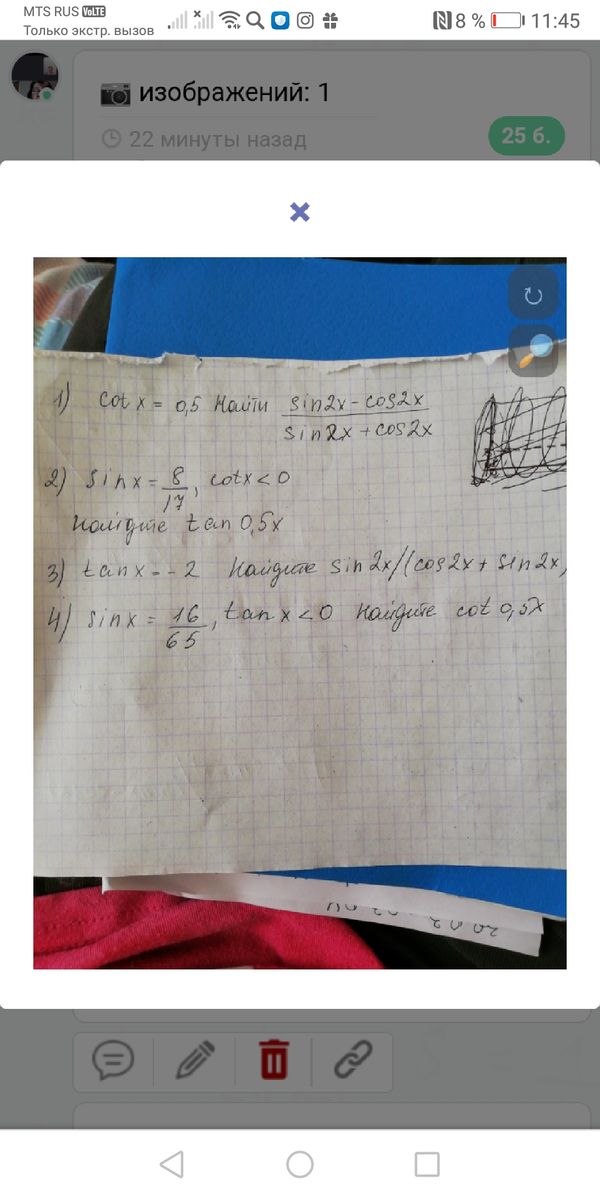 MTS RUS VoLTE
Только экстр. вызов
8 % 11:45
изображений: 1
22 минуты назад
25 б.
1) cot x = 0,5 Найти sin2x - cos2x / sin2x + cos2x
2) sin x = 8/17, cotx < 0
Найдите tan 0,5x
3) tanx = -2 Найдите sin2x/(cos2x + sin2x)
4) sinx = 16/65, tanx < 0 Найдите cot 0,5x